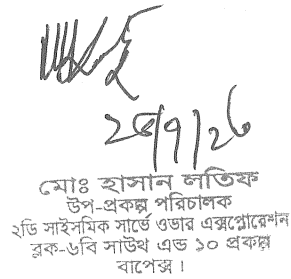 মোঃ হাসান লতিফ
উপ-প্রকল্প পরিচালক
২ডি সাইসমিক সার্ভে ওভার এক্সপ্লোরেশন
ব্লক-৬বি সাউথ এন্ড ১০ প্রকল্প
বাপেক্স।